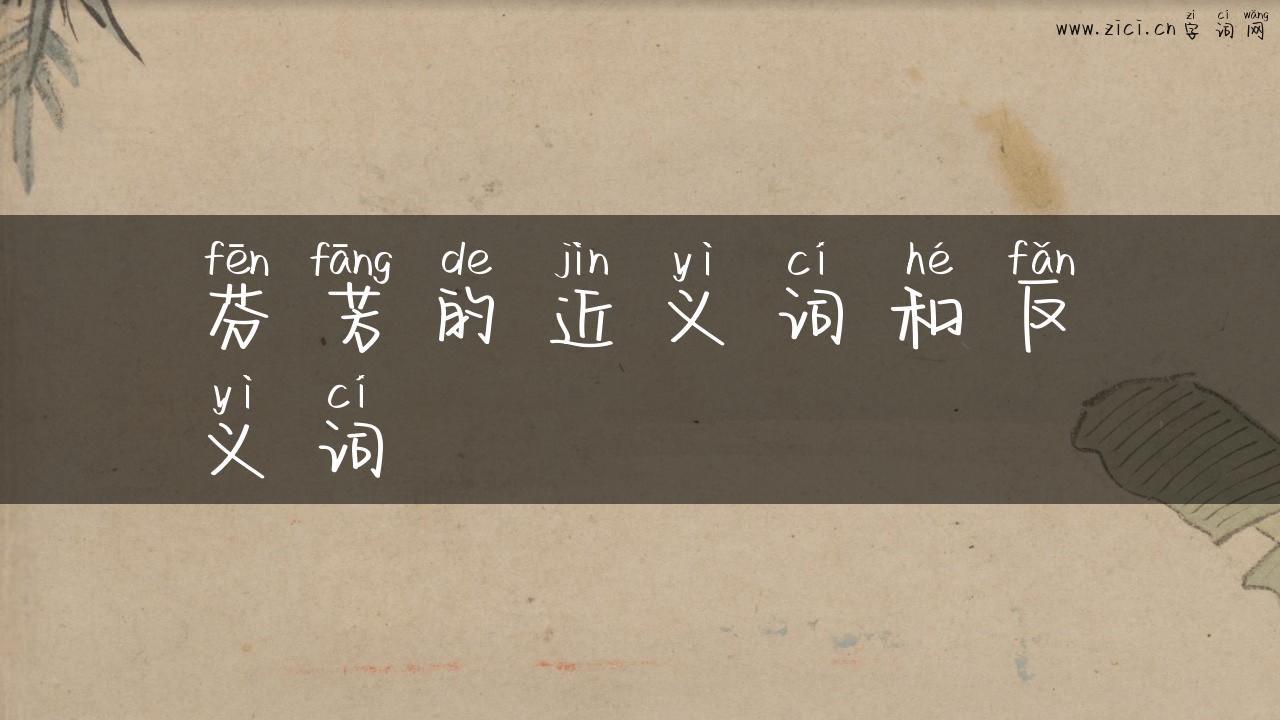 zì cí wǎng
www.zici.cn 字 词 网
fēn fāng de jìn yì cí hé fǎn
芬 芳 的 近 义 词 和 反
yì cí
义 词